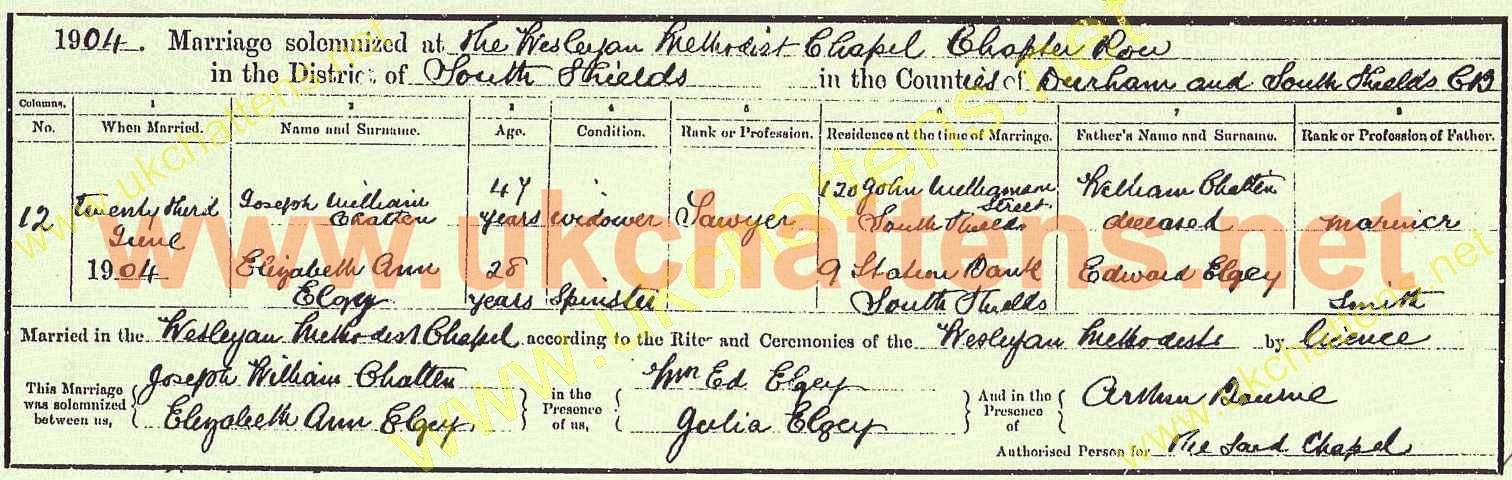 1904. Marriage solemnized at The Wesleyan Methodist Chapel Chapter Row
in the District of South Shields in the Counties of Durham and South Shields CB
Columns. 1 2 3 4 5 6 7 8
No. When Married. Name and Surname. Age. Condition. Rank or Profession. Residence at the time of Marriage. Father's Name and Surname. Rank or Profession of Father.
12 Twenty third June 1904 Joseph William Chatten 47 years Widower Sawyer 120 John Williamson Street South Shields William Chatten deceased Mariner
Elizabeth Ann Elgey 28 years Spinster 9 Station Bank South Shields Edward Elgey Smith
Married in the Wesleyan Methodist Chapel according to the Rites and Ceremonies of the Wesleyan Methodists by Licence
This Marriage was solemnized between us, Joseph William Chatten Elizabeth Ann Elgey in the Presence of us, Wm Ed Elgey Julia Elgey And in the Presence of Arthur Bourne
Authorised Person for The said Chapel
www.ukchattens.net
www.ukchattens.net
www.ukchattens.net
www.ukchattens.net
www.ukchattens.net